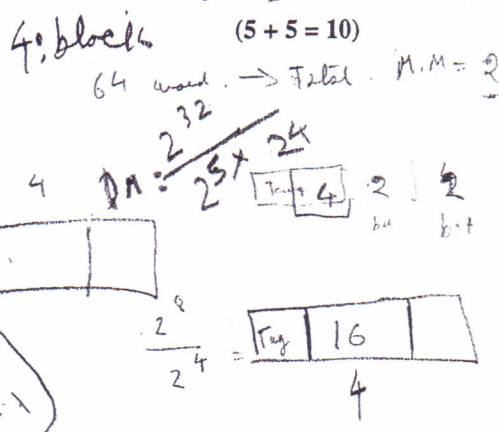 4; block (5 + 5 = 10)
64 word. → Total. M.M = 2
4 DM: 2^32 / 2^5 × 2^4
4 2 2
bit bit
2^8 / 2^4 = Tag 16
4